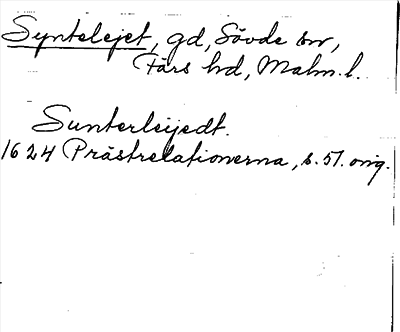 Syntelejet, gd, Sövde sn,
Färs hd, Malm. l.
Sunterleijedt.
1624 Prästrelationerna, s. 51. orig.